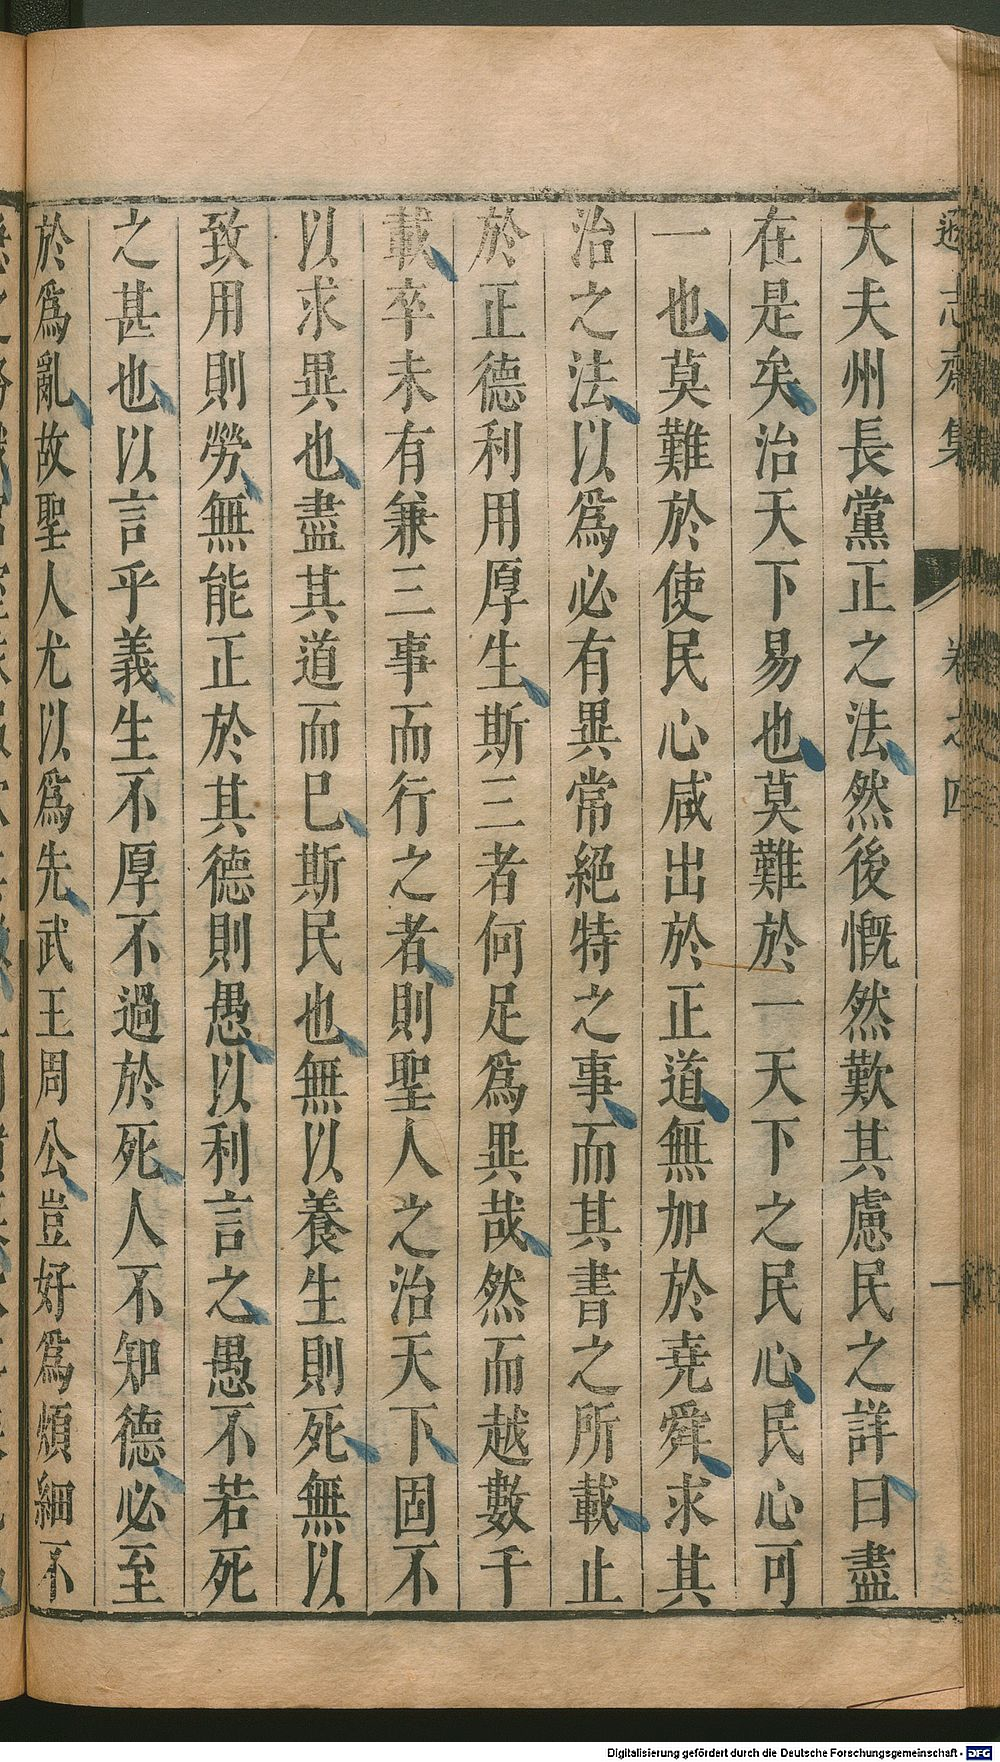 遜志齋集
卷之四
一
大夫州長黨正之法然後慨然歎其慮民之詳曰盡
在是矣治天下易也莫難於一天下之民心民心可
一也莫難於使民心咸出於正道無加於堯舜求其
治之法以爲必有異常絕特之事而其書之所載止
於正德利用厚生斯三者何足爲異哉然而越數千
載卒未有兼三事而行之者則聖人之治天下固不
以求異也盡其道而已斯民也無以養生則死無以
致用則勞無能正於其德則愚以利言之愚不若死
之甚也以言乎義生不厚不過於死人不知德必至
於爲亂故聖人尤以爲先武王周公豈好爲煩細不
Digitalisierung gefördert durch die Deutsche Forschungsgemeinschaft - DFG